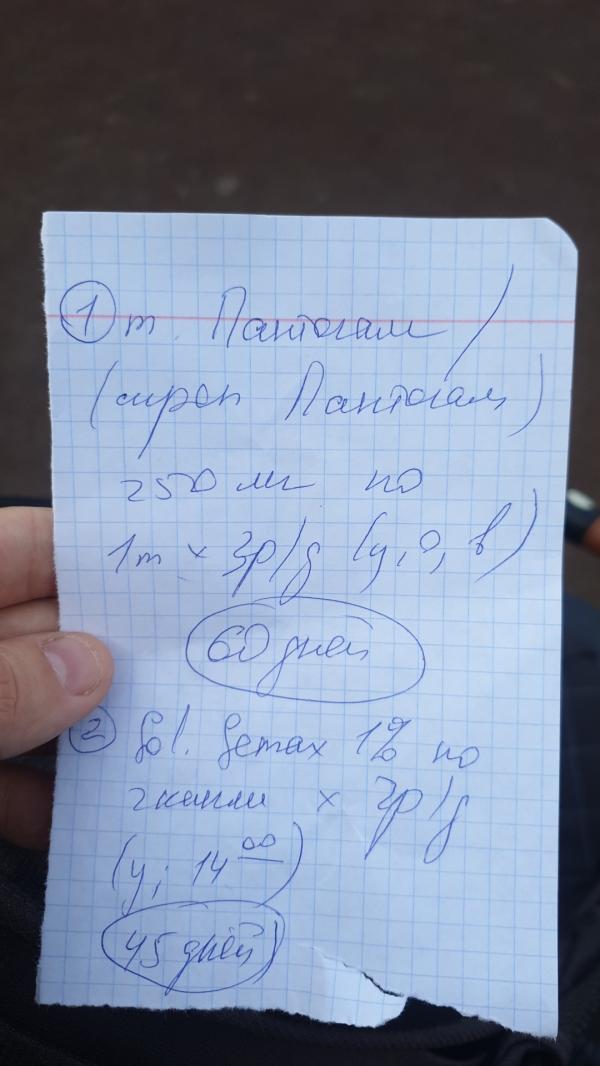 1 т. Пантогам /
(сироп Пантогам)
250 мг по
1т × 3р/д (у, о, в)
60 дней
2 Sol. Semax 1% по
2 капли × 2р/д
(у, 14 00)
45 дней